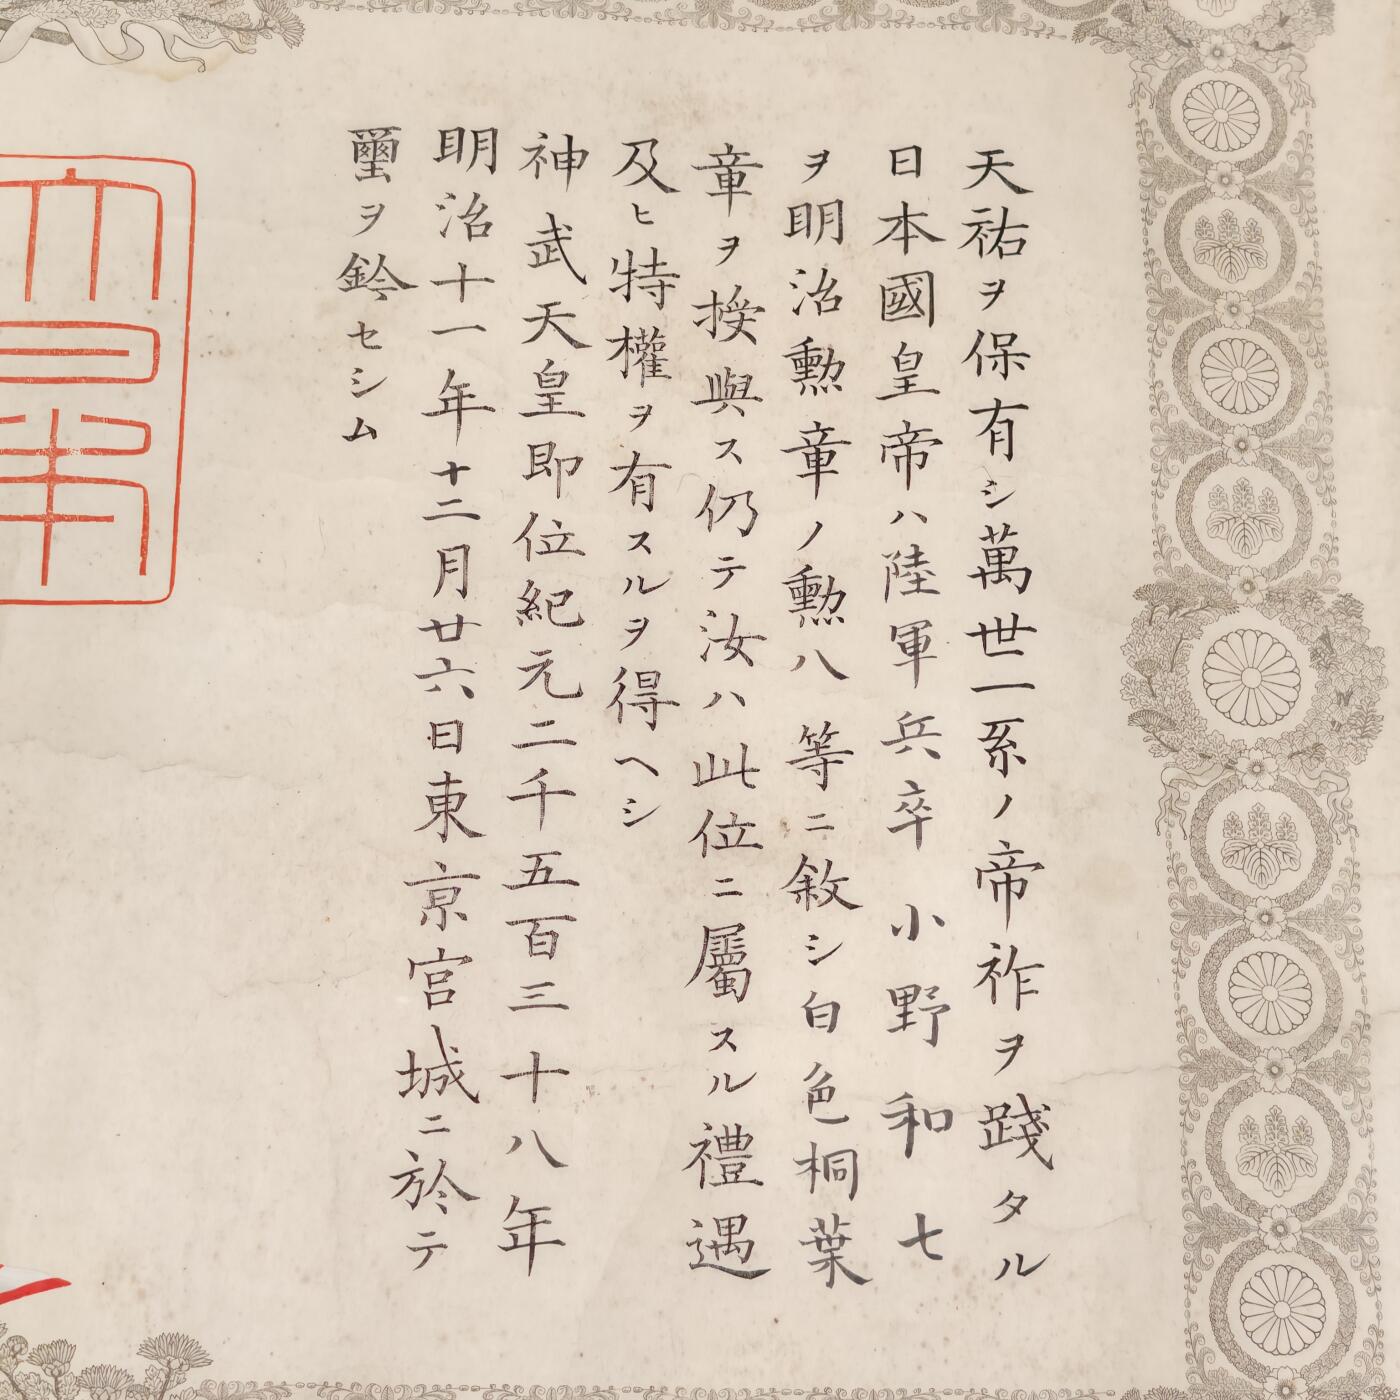 天祐ヲ保有シ萬世一系ノ帝祚ヲ踐タル
日本國皇帝ハ陸軍兵卒小野和七
ヲ明治勲章ノ勲八等ニ敘シ白色桐葉
章ヲ授與ス仍テ汝ハ此位ニ屬スル禮遇
及ヒ特權ヲ有スルヲ得ヘシ
神武天皇即位紀元二千五百三十八年
明治十一年十二月廿六日東京宮城ニ於テ
璽ヲ鈐セシム